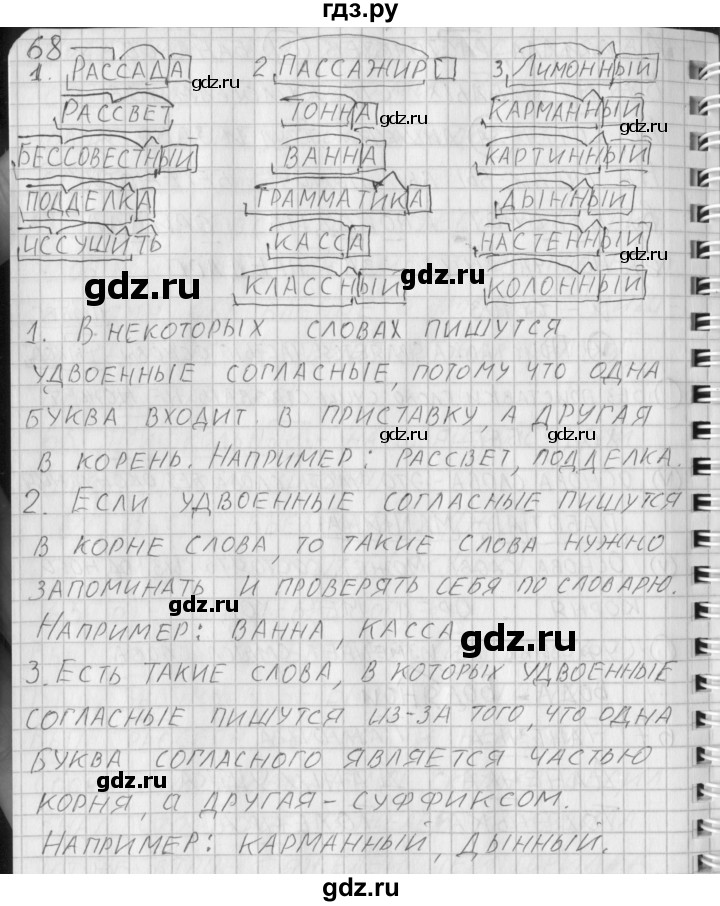 гдз.ру
68
1. РАССАДА 2. ПАССАЖИР 3. ЛИМОННЫЙ
gdz.ru gdz.ru gdz.ru
РАССВЕТ ТОННА КАРМАННЫЙ
gdz.ru gdz.ru
БЕССОВЕСТНЫЙ ВАННА КАРТИННЫЙ
ПОДДЕЛКА ГРАММАТИКА ДЫННЫЙ
ИССУШИТЬ КАССА НАСТЕННЫЙ
gdz.ru gdz.ru gdz.ru
КЛАССНЫЙ КОЛОННЫЙ
1. В НЕКОТОРЫХ СЛОВАХ ПИШУТСЯ
УДВОЕННЫЕ СОГЛАСНЫЕ, ПОТОМУ ЧТО ОДНА
gdz.ru
БУКВА ВХОДИТ В ПРИСТАВКУ, А ДРУГАЯ
gdz.ru gdz.ru
В КОРЕНЬ. НАПРИМЕР: РАССВЕТ, ПОДДЕЛКА.
2. ЕСЛИ УДВОЕННЫЕ СОГЛАСНЫЕ ПИШУТСЯ
В КОРНЕ СЛОВА, ТО ТАКИЕ СЛОВА НУЖНО
ЗАПОМИНАТЬ И ПРОВЕРЯТЬ СЕБЯ ПО СЛОВАРЮ.
gdz.ru
НАПРИМЕР: ВАННА, КАССА
gdz.ru
3. ЕСТЬ ТАКИЕ СЛОВА, В КОТОРЫХ УДВОЕННЫЕ
СОГЛАСНЫЕ ПИШУТСЯ ИЗ-ЗА ТОГО, ЧТО ОДНА
БУКВА СОГЛАСНОГО ЯВЛЯЕТСЯ ЧАСТЬЮ
gdz.ru
КОРНЯ, А ДРУГАЯ - СУФФИКСОМ.
gdz.ru
НАПРИМЕР: КАРМАННЫЙ, ДЫННЫЙ.
gdz.ru